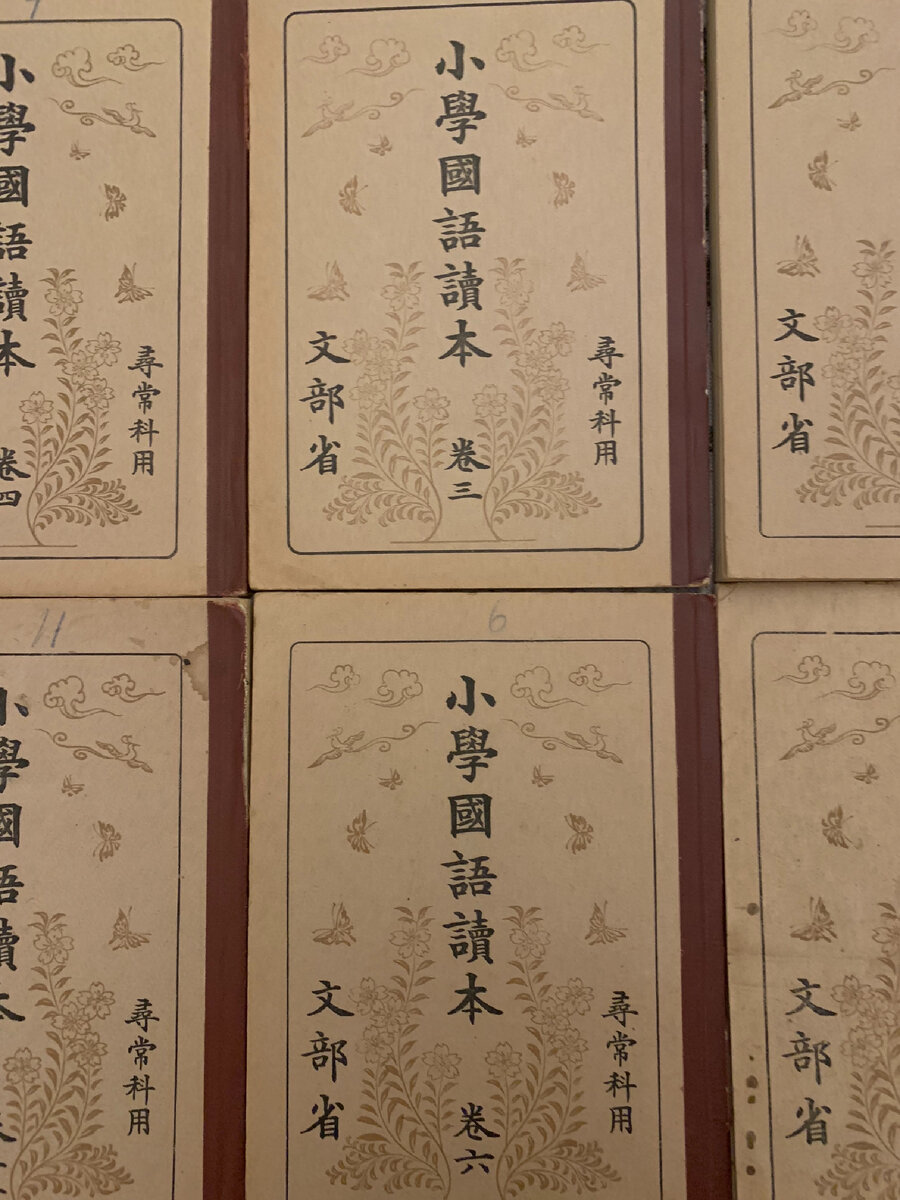 小學國語讀本 卷四
尋常科用
尋常科用
小學國語讀本 卷三
文部省
文部省
11
小學國語讀本
尋常科用
6
尋常科用
小學國語讀本 卷六
文部省
文部省